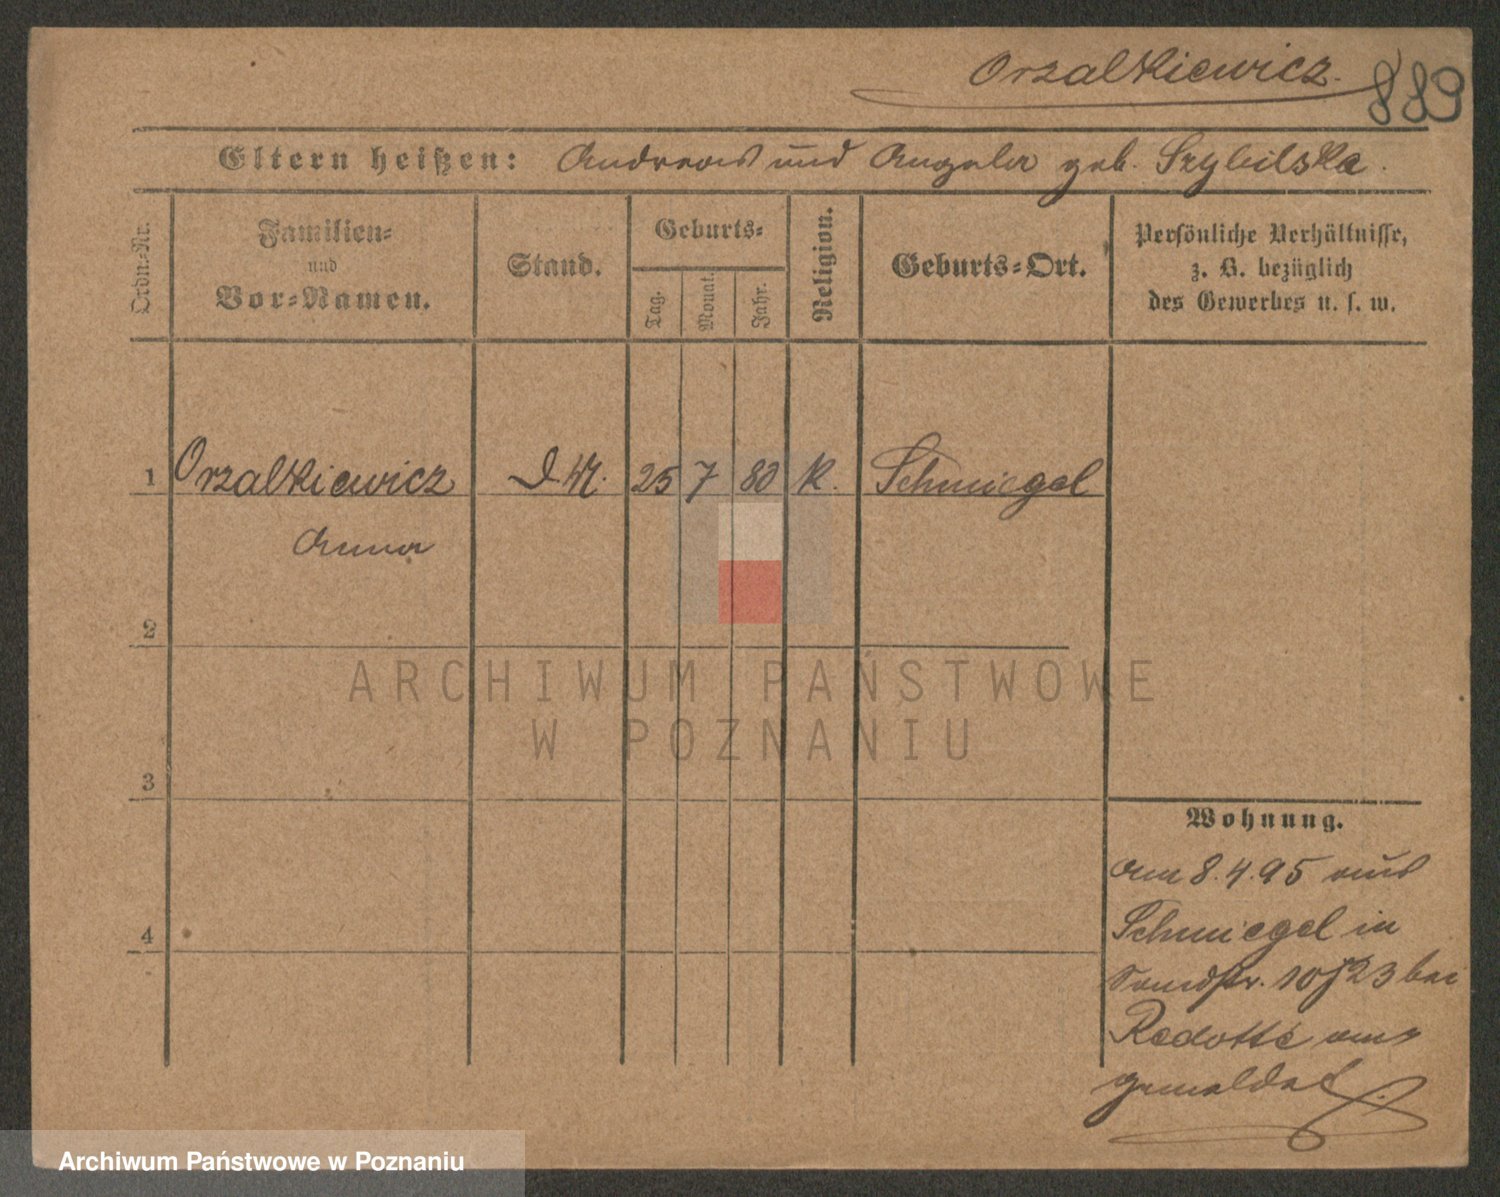 Orzalkiewicz.
889
Eltern heißen: Andreas und Angela geb. Szybilska.
Ordn.-Nr.
Familien-
und
Vor-Namen.
Stand.
Geburts-
Tag.
Monat.
Jahr.
Religion.
Geburts-Ort.
Persönliche Verhältnisse,
z. B. bezüglich
des Gewerbes u. s. w.
1 Orzalkiewicz D.M. 25 7 80 K. Schmiegel
Anna
2
ARCHIWUM PAŃSTWOWE
W POZNANIU
3
4
Wohnung.
Am 8.4.95 aus
Schmiegel in
Sandstr. 10/23 bei
Redotté ange
gemeldet
Archiwum Państwowe w Poznaniu